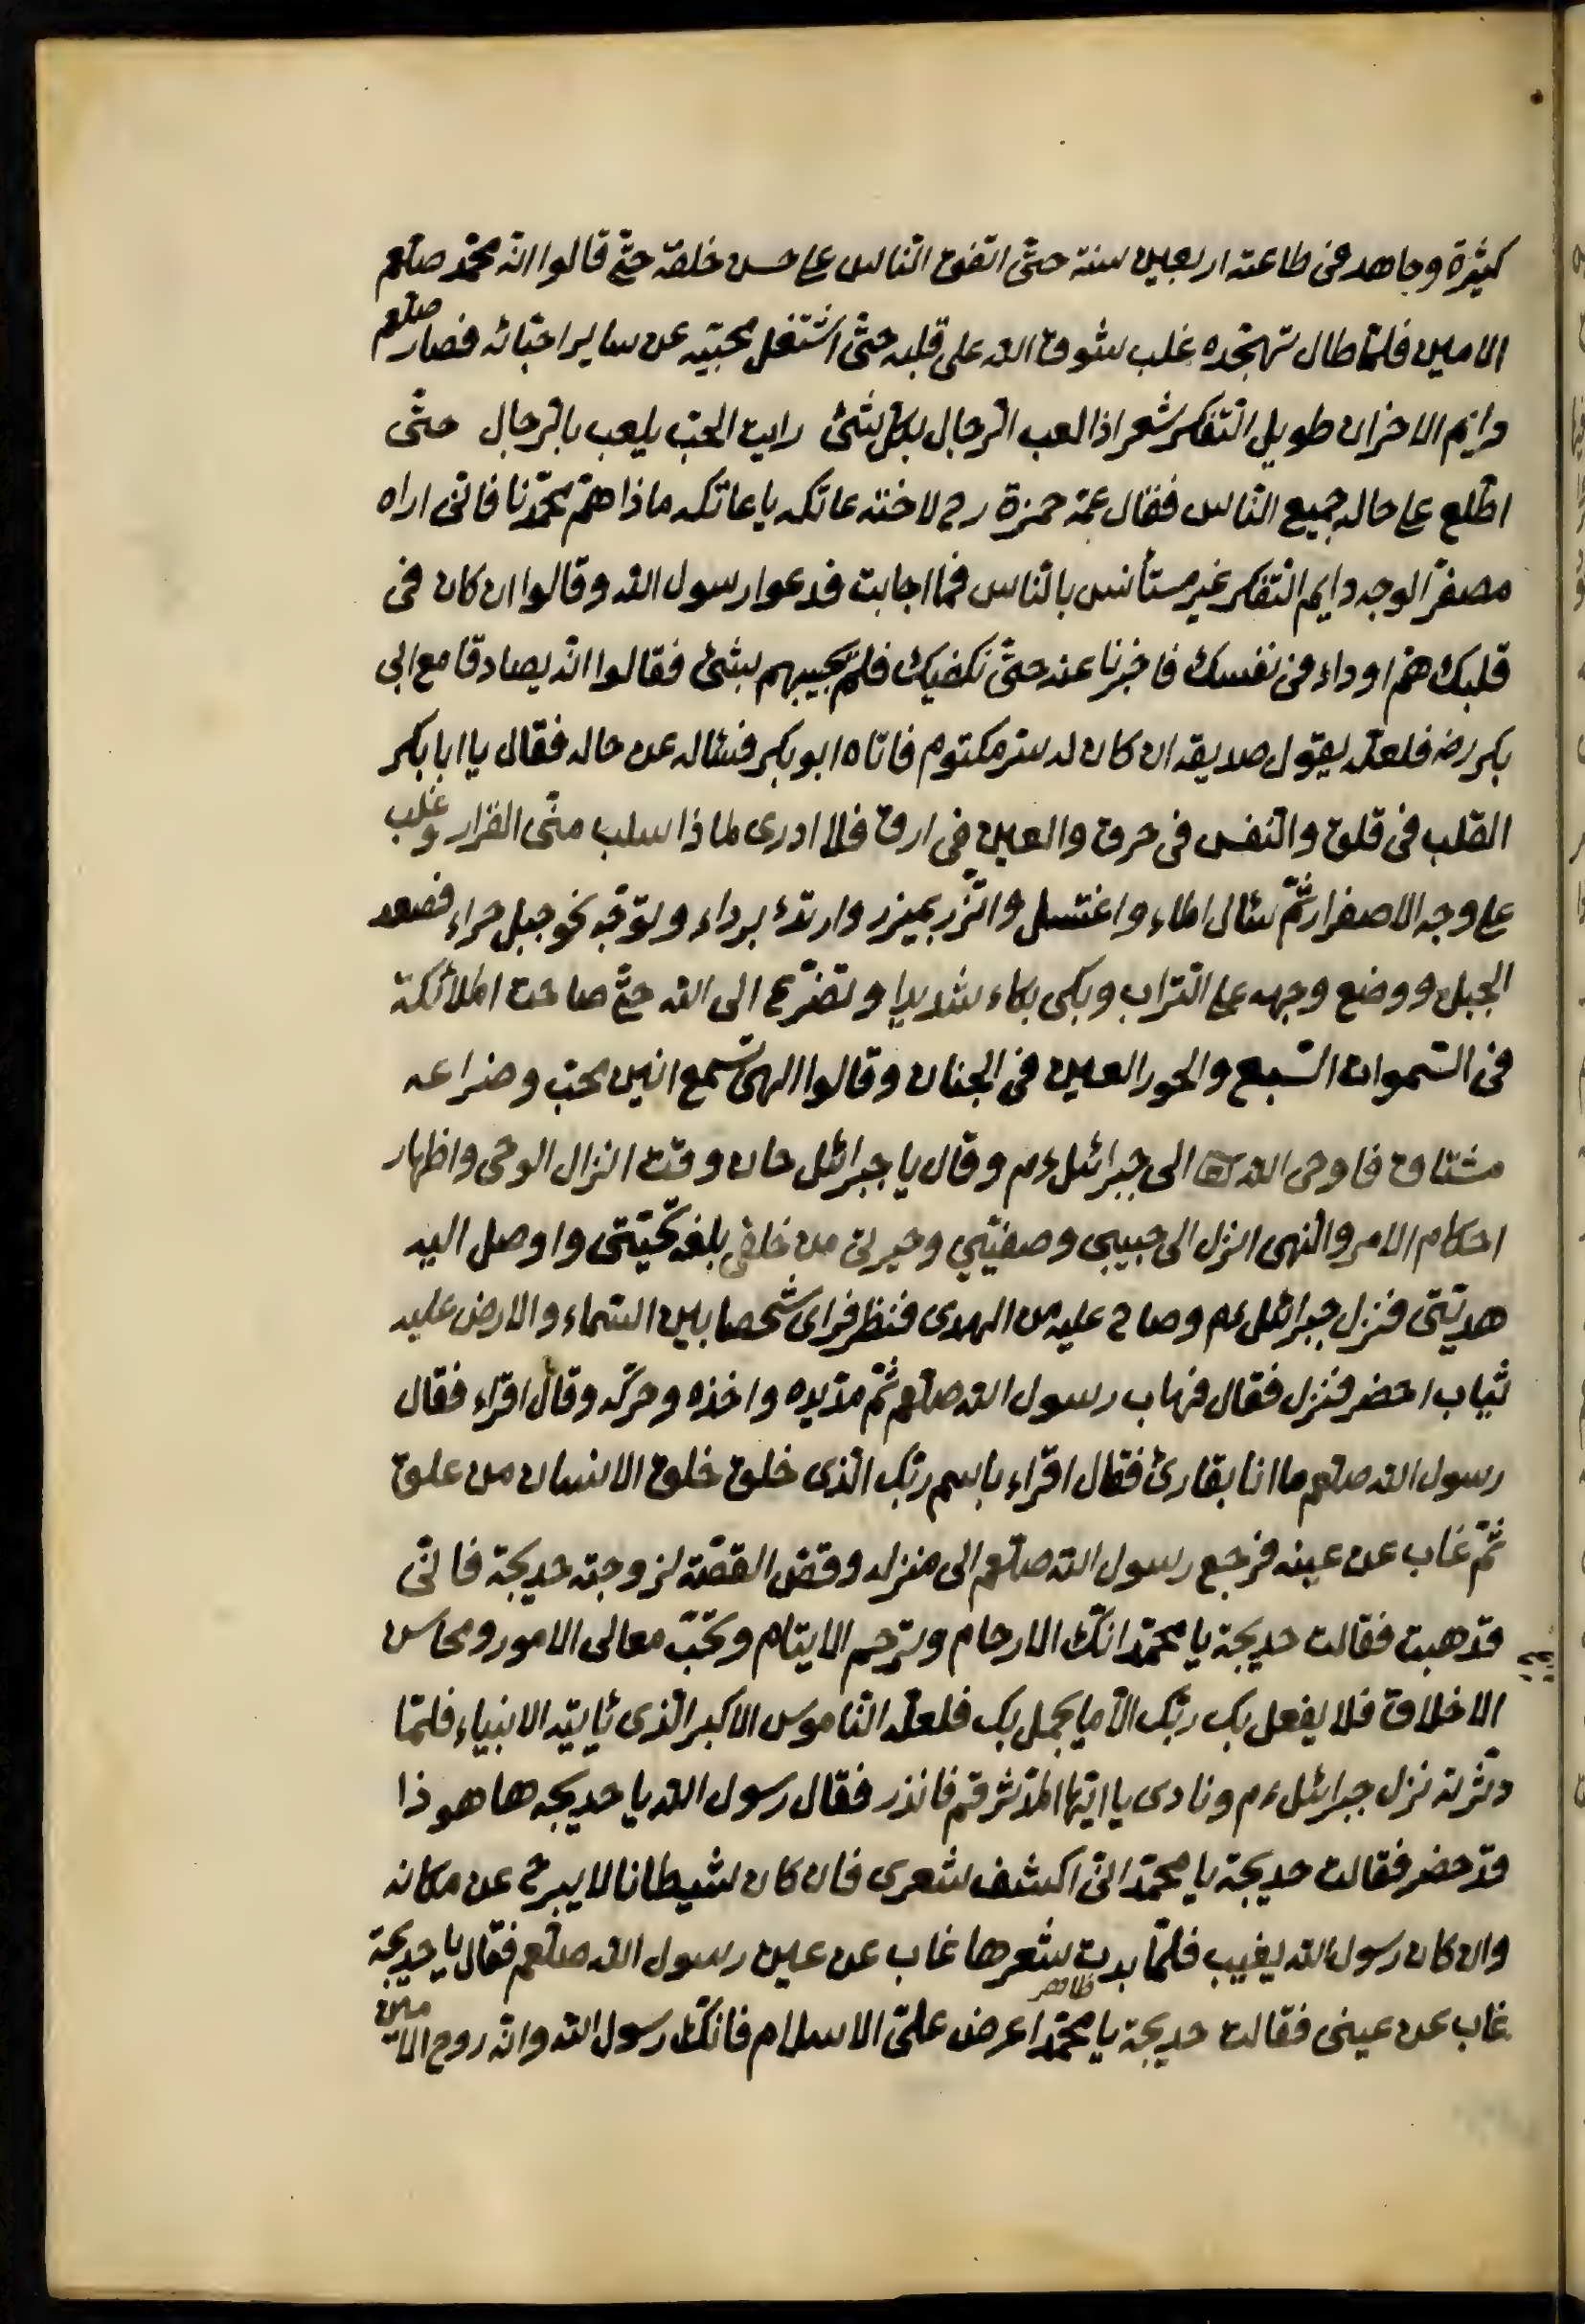 كثيرة وجاهد فى طاعته اربعين سنة حتّى اتّفق النّاس على حسن خلقه حتّى قالوا انّه محمّد صلعم
الامين فلمّا طال تهجّده غلب شوق الله على قلبه حتّى اشتغل بمحبّته عن ساير احبّائه فصار صلعم
دايم الاحزان طويل التّفكر شعر اذا لعب الرّجال بكلّ شئ رايت الحبّ يلعب بالرّجال حتّى
اطّلع على حاله جميع النّاس فقال عمّه حمزة رح لاخته عاتكه يا عاتكه ماذا همّ محمّدنا فانّى اراه
مصفرّ الوجه دايم التّفكر غير مستأنس بالنّاس فما اجابت فدعوا رسول الله وقالوا ان كان فى
قلبك همّ او داء فى نفسك فاخبرنا عنه حتّى نكفيك فلم يجيبهم بشئ فقالوا انّه يصادقا مع ابى
بكر رضه فلعلّه يقول صديقه ان كان له سرّ مكتوم فاتاه ابو بكر فسئاله عن حاله فقال يا ابا بكر
القلب فى قلق والنّفس فى حرق والعين فى ارق فلا ادرى لماذا سلب منّى القرار وغلب
على وجه الاصفرار ثمّ سئال الماء واغتسل واتّزر بميزر وارتدئ برداء وتوجّه نحو جبل حراء فصعد
الجبل ووضع وجهه على التّراب وبكى بكاء شديدا وتضرّع الى الله حتّى صاحت الملائكة
فى السّموات السّبع والحور العين فى الجنان وقالوا الهى تسمع انين محبّ وضراعه
مشتاق فاوحى الله الى جبرائل ءم وقال يا جبرائل حان وقت انزال الوحى واظهار
احكام الامر والنّهى انزل الى حبيبى وصفيّي وخيرتى من خلقى بلّغه تحيّتى واوصل اليه
هديّتى فنزل جبرائل ءم وصاح عليه من الهدى فنظر فراى شخصا بين السّماء والارض عليه
ثياب اخضر فنزل فقال فهاب رسول الله صلعم ثمّ مدّ يده واخذه وحرّكه وقال اقراء فقال
رسول الله صلعم ما انا بقارئ فقال اقراء باسم ربّك الّذى خلق خلق الانسان من علق
ثمّ غاب عن عينه فرجع رسول الله صلعم الى منزله وقصّ القصّة لزوجته خديجة فانّى
قد هبت فقالت خديجة يا محمّد انّك الارحام وترحم الايتام وتحبّ معالى الامور ومحاسن
الاخلاق فلا يفعل بك ربّك الّا ما يجمل بك فلعلّه النّاموس الاكبر الّذى يأتيه الانبياء فلمّا
دثّرته نزل جبرائل ءم ونادى يا ايّها المدّثر قم فانذر فقال رسول الله يا خديجه ها هو ذا
قد حضر فقالت خديجة يا محمّد انّى اكشف شعرى فان كان شيطانا لا يبرح عن مكانه
وان كان رسول الله يغيب فلمّا بدت شعرها غاب عن عين رسول الله صلعم فقال يا خديجة
ظاهر
غاب عن عينى فقالت خديجة يا محمّد اعرض علىّ الاسلام فانّك رسول الله وانّه روح الامين